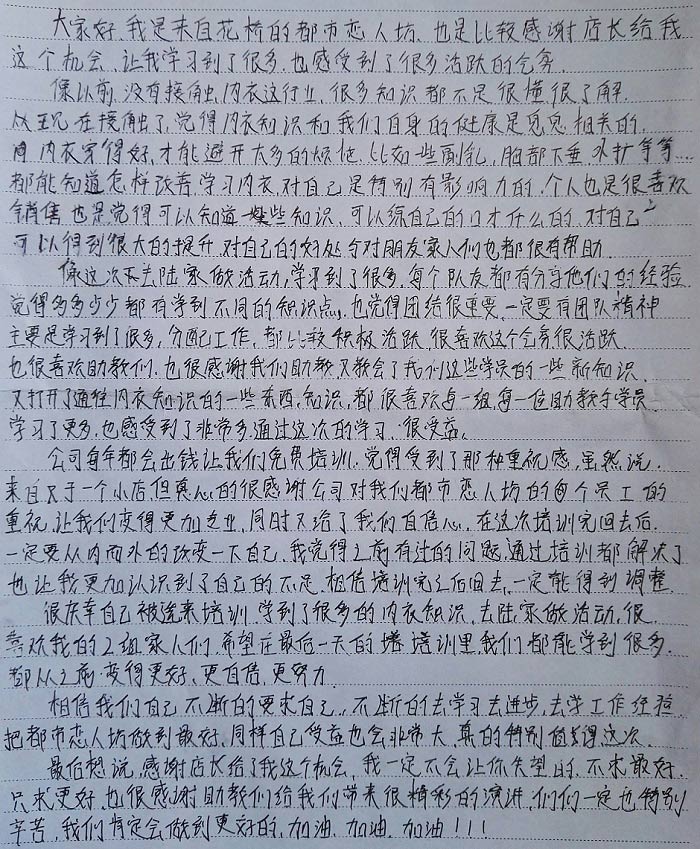 大家好，我是来自花桥的都市恋人坊，也是比较感谢店长给我
这个机会，让我学习到了很多，也感受到了很多活跃的气氛
像以前，没有接触，内衣这行业，很多知识都不是很懂很了解
从至现在接触了，觉得内衣知识和我们自身的健康是息息相关的，
内衣穿得好，才能避开太多的烦恼，比如一些副乳，胸部下垂，外扩等等…
都能知道怎样改善，学习内衣，对自己是特别有影响力的，个人也是很喜欢
销售，也是觉得可以知道一些知识，可以练自己的口才什么的，对自己
可以得到很大的提升，对自己的好处，对朋友家人们也都很有帮助
像这次下去陆家做活动，学习到了很多，每个队友都有分享他们的经验
觉得多多少少都有学到不同的知识点，也觉得团结很重要，一定要有团队精神
主要是学习到了很多，分配工作，都比较积极活跃，很喜欢这个气氛很活跃
也很喜欢助教们，也很感谢我们助教又教会了我们这些学员的一些新知识，
又打开了通往内衣知识的一些东西，知识，都很喜欢每一组，每一位助教与学员
学习了更多，也感受到了非常多，通过这次的学习，很受益。
公司每年都会出钱让我们免费培训，觉得受到了那种重视感，虽然说，
来自只于一个小店，但真心的很感谢公司对我们都市恋人坊的每个员工的
重视，让我们变得更加专业，同时又给了我们自信心，在这次培训完回去后，
一定要从内而外的改变一下自己，我觉得之前有过的问题，通过培训都解决了
也让我更加认识到了自己的不足，相信培训完之后回去，一定能得到调整
很庆幸自己被选来培训，学到了很多的内衣知识，去陆家做活动，很
喜欢我的2组家人们，希望在最后一天的培训里，我们都能学到很多，
都从之前，变得更好、更自信、更努力
相信我们自己不断的要求自己，不断的去学习去进步，去学工作经验
把都市恋人坊做到最好，同样自己受益也会非常大，真的特别值得这次，
最后想说，感谢店长给了我这个机会，我一定不会让你失望的，不求最好，
只求更好，也很感谢助教们给我们带来很精彩的演讲，们们一定也特别
辛苦，我们肯定会做到更好的，加油，加油，加油！！！